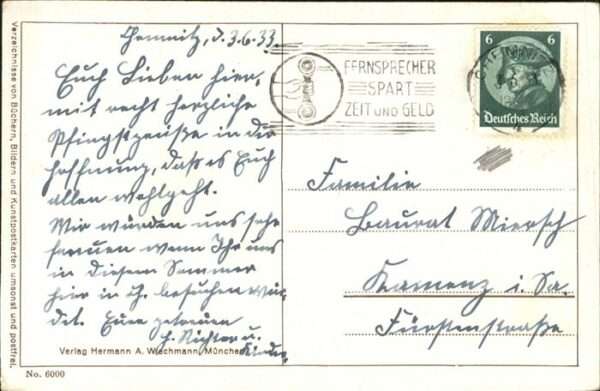 Chemnitz, d. 3.6.33.
Euch Lieben hier,
mit recht herzliche
Pfingstgrüße in der
Hoffnung, daß es Euch
allen wohlgeht.
Wir würden uns sehr
freuen wenn Ihr uns
in diesem Sommer
hier in Ch. besuchen wür-
det. Eure getreuen
Richter u.
Kinder.
FERNSPRECHER
SPART
ZEIT UND GELD
6 6
Deutsches Reich
Familie
Baurat Miersch
Kamenz i. Sa.
Fürstenstraße
Verzeichnisse von Büchern, Bildern und Kunstpostkarten umsonst und postfrei.
Verlag Hermann A. Wiechmann, München
No. 6000